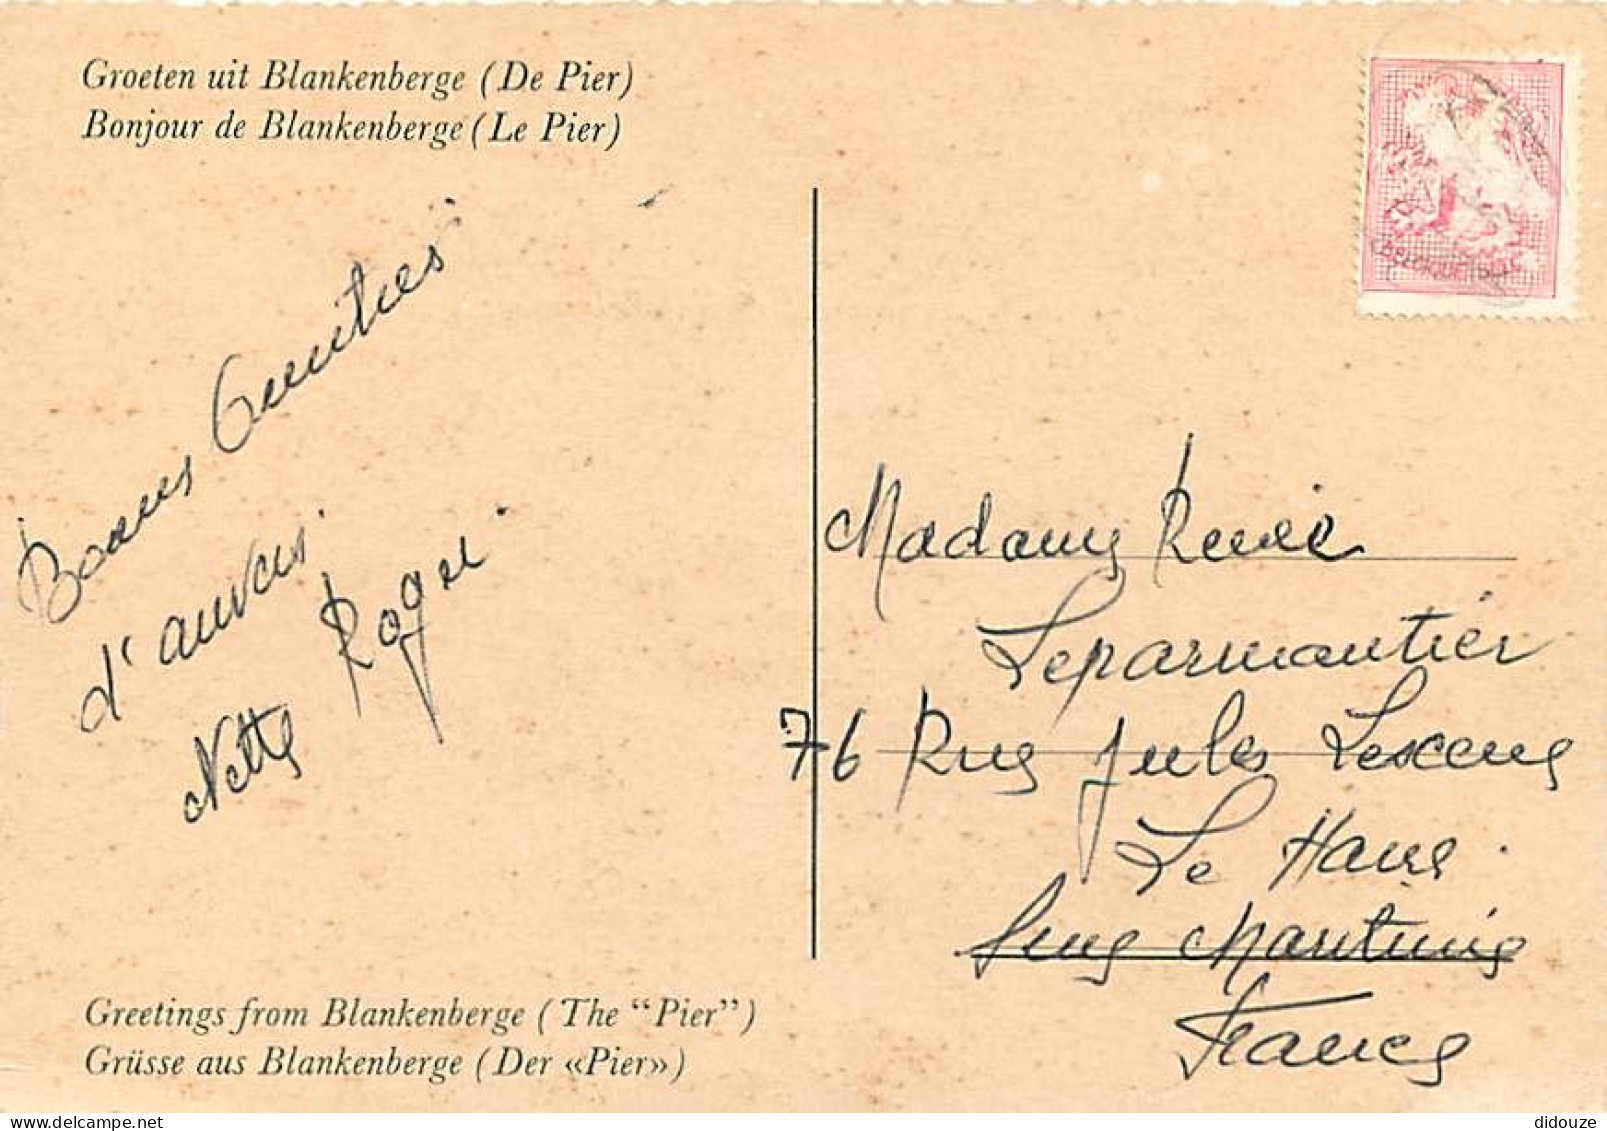 Groeten uit Blankenberge (De Pier)
Bonjour de Blankenberge (Le Pier)
Bonnes Amitiés
d'anvers.
Netty Roger.
BELGIQUE BELGIE
Madame Renée
Leparmantier
76 Rue Jules Lescene
Le Havre.
Seine Maritime
France
Greetings from Blankenberge (The “Pier”)
Grüsse aus Blankenberge (Der «Pier»)
didouze